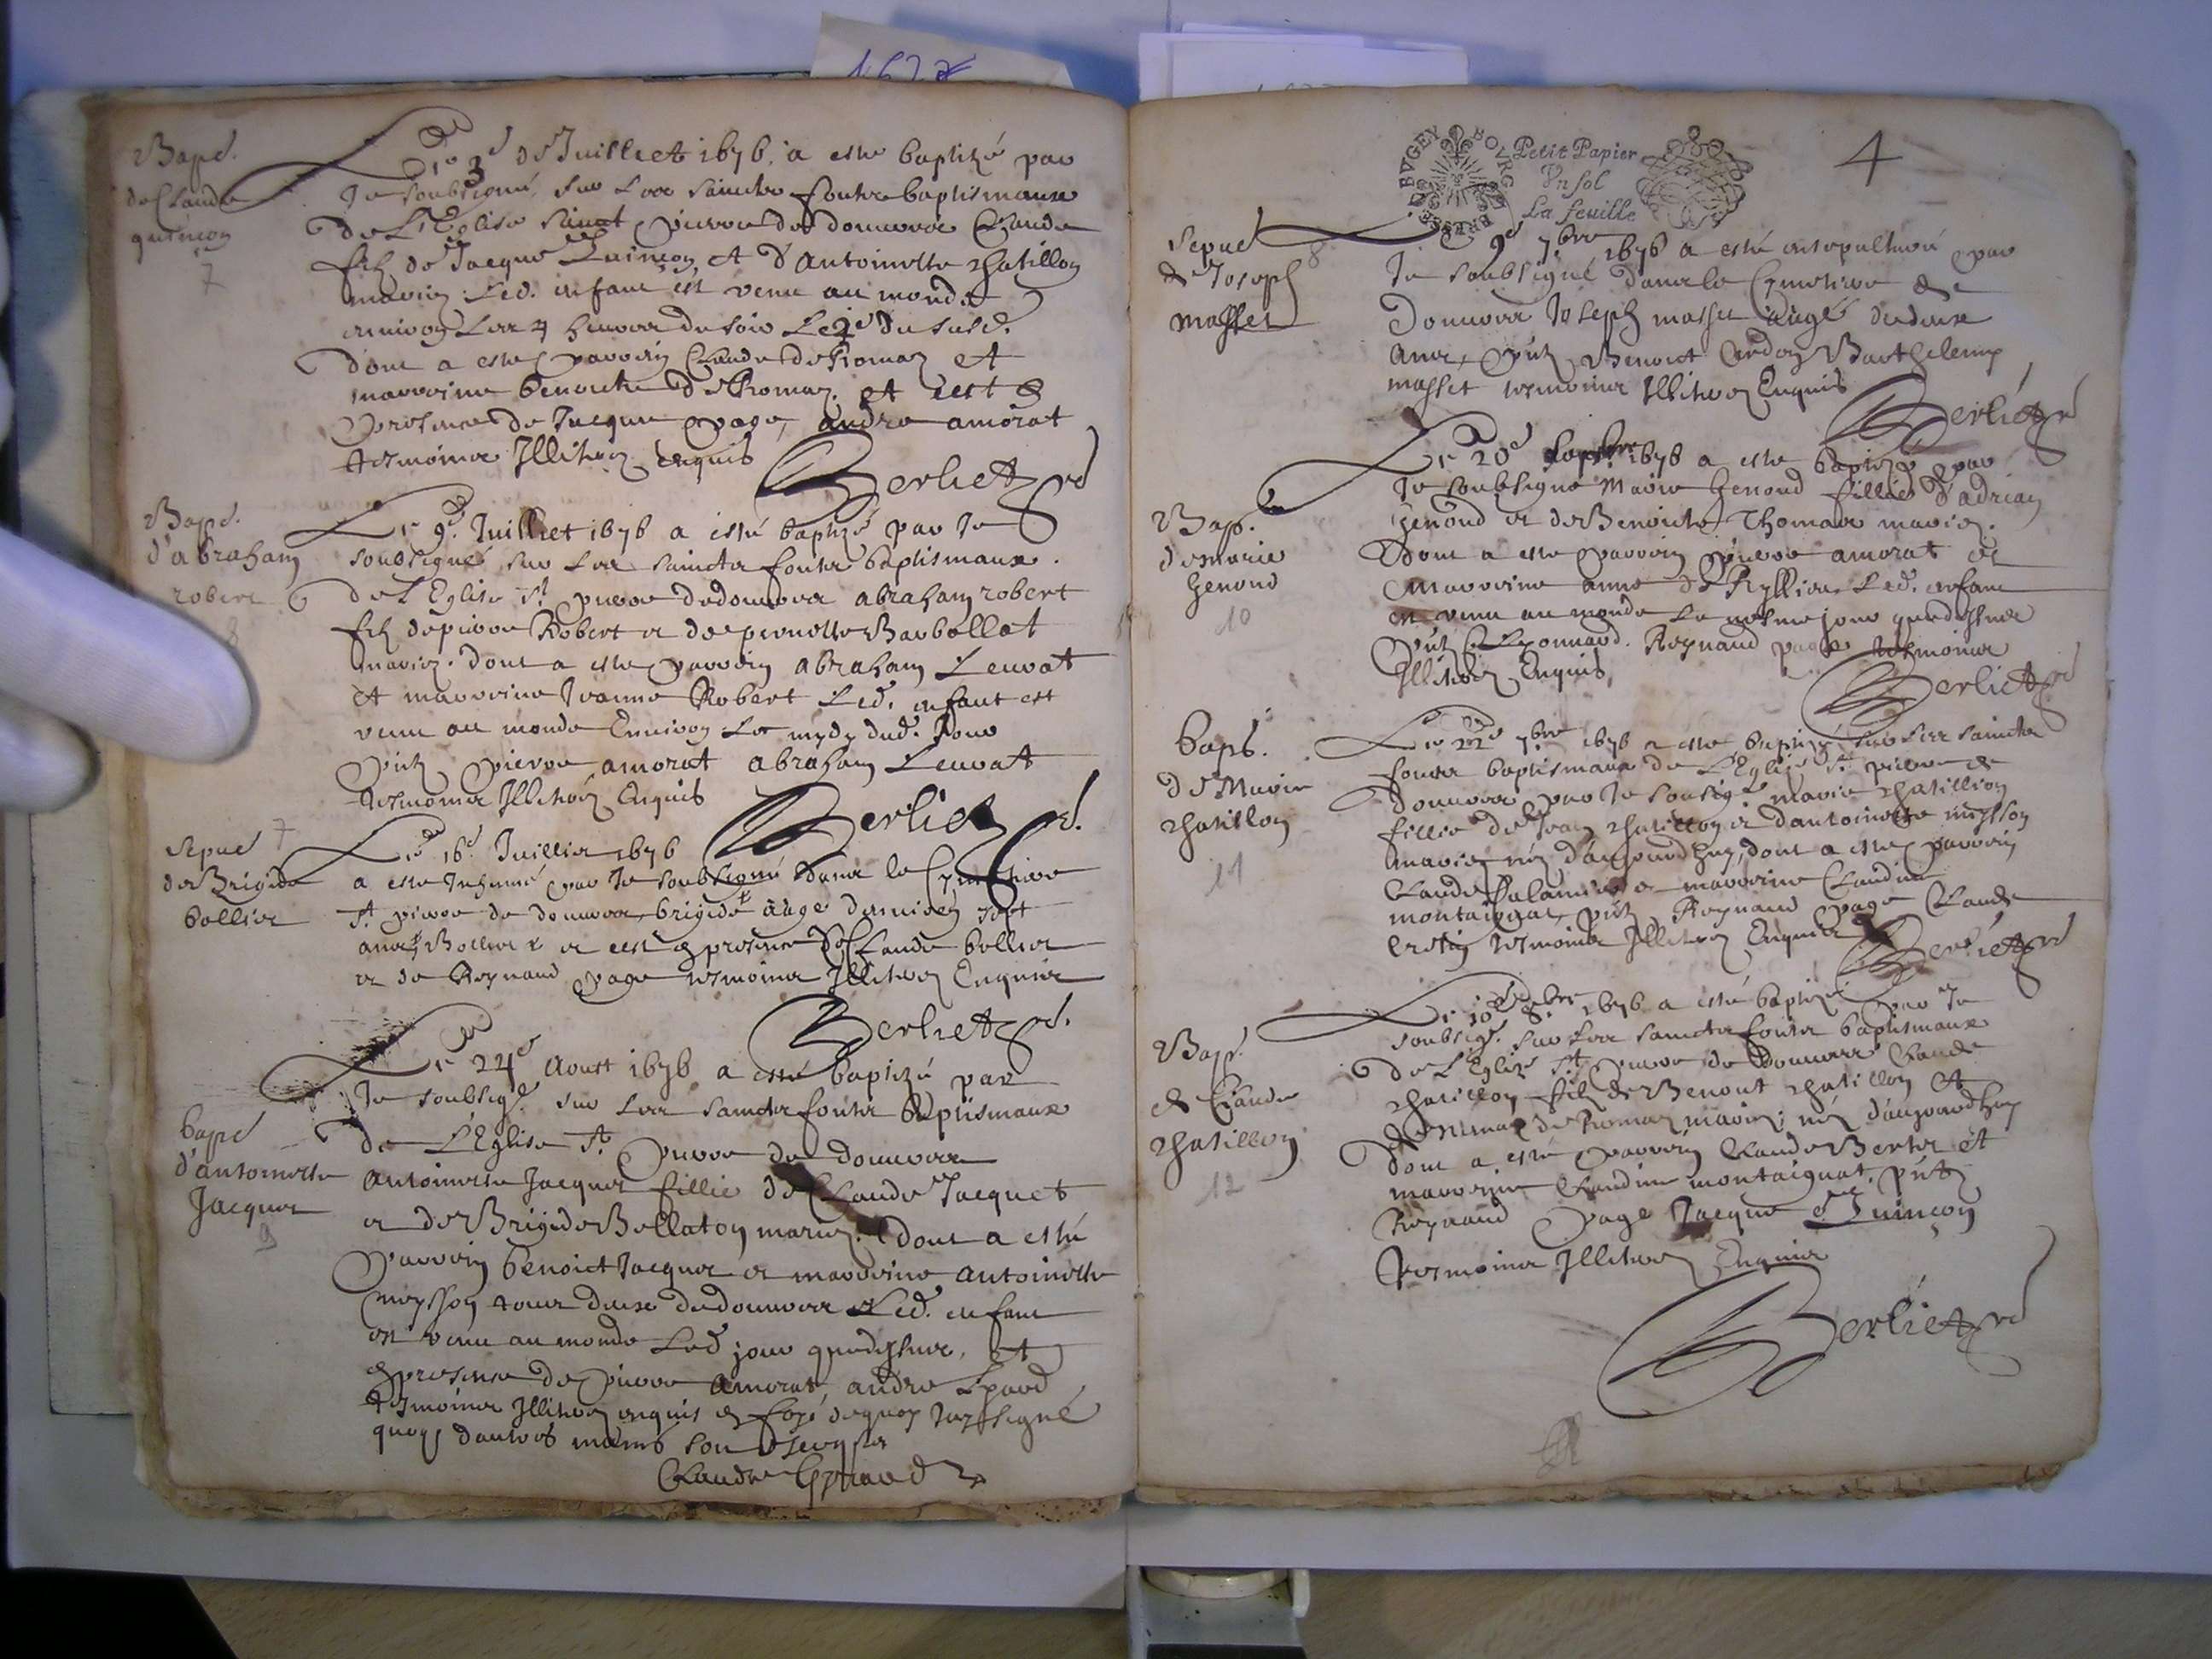 1677
Bapt.
de Claude
quinçon
7
Le 3e de Juillet 1676, a este baptizé par
Je soubsigné, sur les saincts fonts baptismaux
de L'Eglise sainct pierre de douuvres Claude
filz de Jacque Quinçon et d'Antoinette chatillon
mariez. Led. enfant est venu au monde
enuiron les 4 heures du soir Le 2e du susd.
dont a este parrein Claude de Romaz et
marreine benoicte de Romaz. et cest en
presence de Jacque page, andre amorat
tesmoins Illiterez enquis
Berliet
Bapt.
d'abraham
robert
8
Le 9e Juillet 1676 a esté baptizé par Je
soubsigné, sur les saincts fonts baptismaux
de L'Eglise St pierre de douuvres abraham robert
filz de pierre Robert et de pernette Barbollat
mariez. dont a este parrein abraham Leuvat
et marreine Jeanne Robert Led. enfant est
venu au monde Enuiron Le mydy dud. Jour
pntz pierre amorat abraham Leuvat
tesmoins Illiterez Enquis
Berliet
Sepud
de Brigide
bollier
7
Le 16e Juillet 1676
a este Inhumé par Je soubsigné dans le Cymetiere
St pierre de douuvres, brigide aage denuiron sept
ans Bollier et cest en presence de Claude bollier
et de Reynaud page tesmoins Illiterez Enquis
Berliet
bapt
d'antoinette
Jacquet
9
Le 24e Aoust 1676 a esté baptizé par
Je soubsigé. sur les saincts fonts baptismaux
de L'Eglise St. pierre de douuvres
Antoinette Jacquet fillie de Claude Jacquet
et de Brigide Bollaton mariez. dont a esté
parrein benoict Jacquet et marreine antoinette
moysson tous deux de douuvres Led. enfant
est venu au monde Led jour que dessus, et
en presence de pierre Amorat, andre
tesmoins Illiterez enquis
Claude
4
DE BVGEY BOVRG BRESSE
Petit Papier
Vn sol
La feuille
Sepud
de Joseph
masset
8
Le 9e 7bre 1676 a esté ensepulturé par
Je soubsigné dans le Cymetiere de
Douuvres Joseph masset aagé de deux
ans, pntz Benoict Barthelemy
masset tesmoins Illiterez Enquis
Berliet
Bap.
de marie
Genoud
10
Le 20e 1676 a este baptizé par
Je soubsigné Marie Genoud fillie d'adrian
Genoud et de Benoicte Thomas mariez.
Dont a este parrein pierre amorat et
Marreine anne de Ryllieu Led. enfant
est venu au monde Le mesme jour que dessus
pntz Leonnard. Reynaud page tesmoins
Illiterez Enquis,
Berliet
bapt.
de Marie
chatillon
11
Le 22e 7bre 1676 a este baptizé sur les saincts
fonts baptismaux de L'Eglise St. pierre de
Douuvres par Je soubsigé marie chatillion
fillie de Jean chatillon et dantoinette moysson
mariez néz d'aujourd'huy, dont a este parrein
Claude et marreine Claudine
montaignat, pntz Reynaud page Claude
tesmoins Illiterez Enquis
Berliet
Bapt.
de Claude
chatillon
12
Le 10e 8bre 1676 a esté baptizé par Je
soubsigé. sur les saincts fonts baptismaux
de L'Eglize St pierre de Douuvres Claude
chatillon filz de Benoict chatillon et
de de Romaz mariez; néz d'aujourdhuy
dont a esté parrein Claude Berliet et
marreine Claudine montaignat. pntz
Reynaud page Jacque Quinçon
tesmoins Illiterez Enquis
Berliet